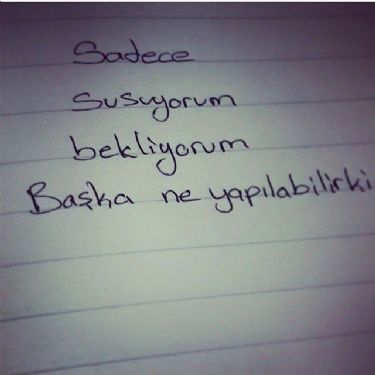 Sadece
susuyorum
bekliyorum
Başka ne yapılabilirki